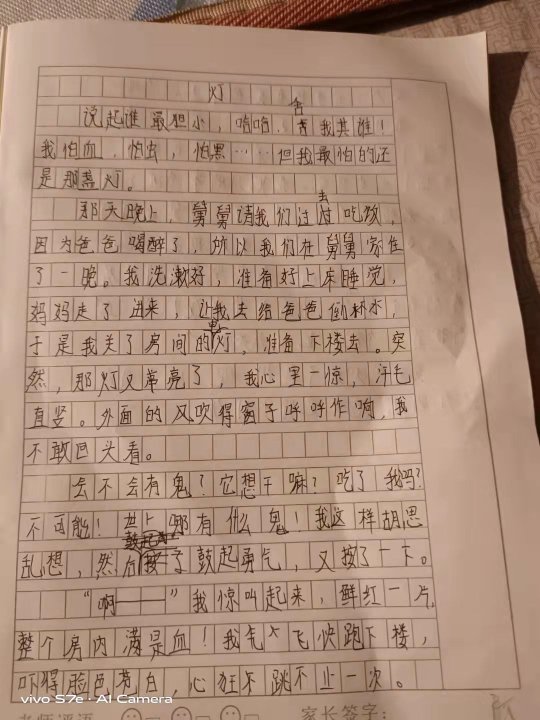 灯
说起谁最胆小，哈哈，舍我其谁！
我怕血，怕虫，怕黑……但我最怕的还
是那盏灯。
那天晚上，舅舅请我们过去吃饭，
因为爸爸喝醉了，所以我们在舅舅家住
了一晚。我洗漱好，准备好上床睡觉，
妈妈走了进来，让我去给爸爸倒杯水，
于是我关了房间的电灯，准备下楼去。突
然，那灯又亮了，我心里一惊，汗毛
直竖。外面的风吹得窗子呼呼作响，我
不敢回头看。
会不会有鬼？它想干嘛？吃了我吗？
不可能！世上哪有什么鬼！我这样胡思
乱想，然后鼓起勇气，又按了一下。
“啊——”我惊叫起来，鲜红一片，
整个房内满是血！我飞快跑下楼，
吓得脸色苍白，心狂跳不止一次。
vivo S7e · AI Camera
老师评语
家长签字：